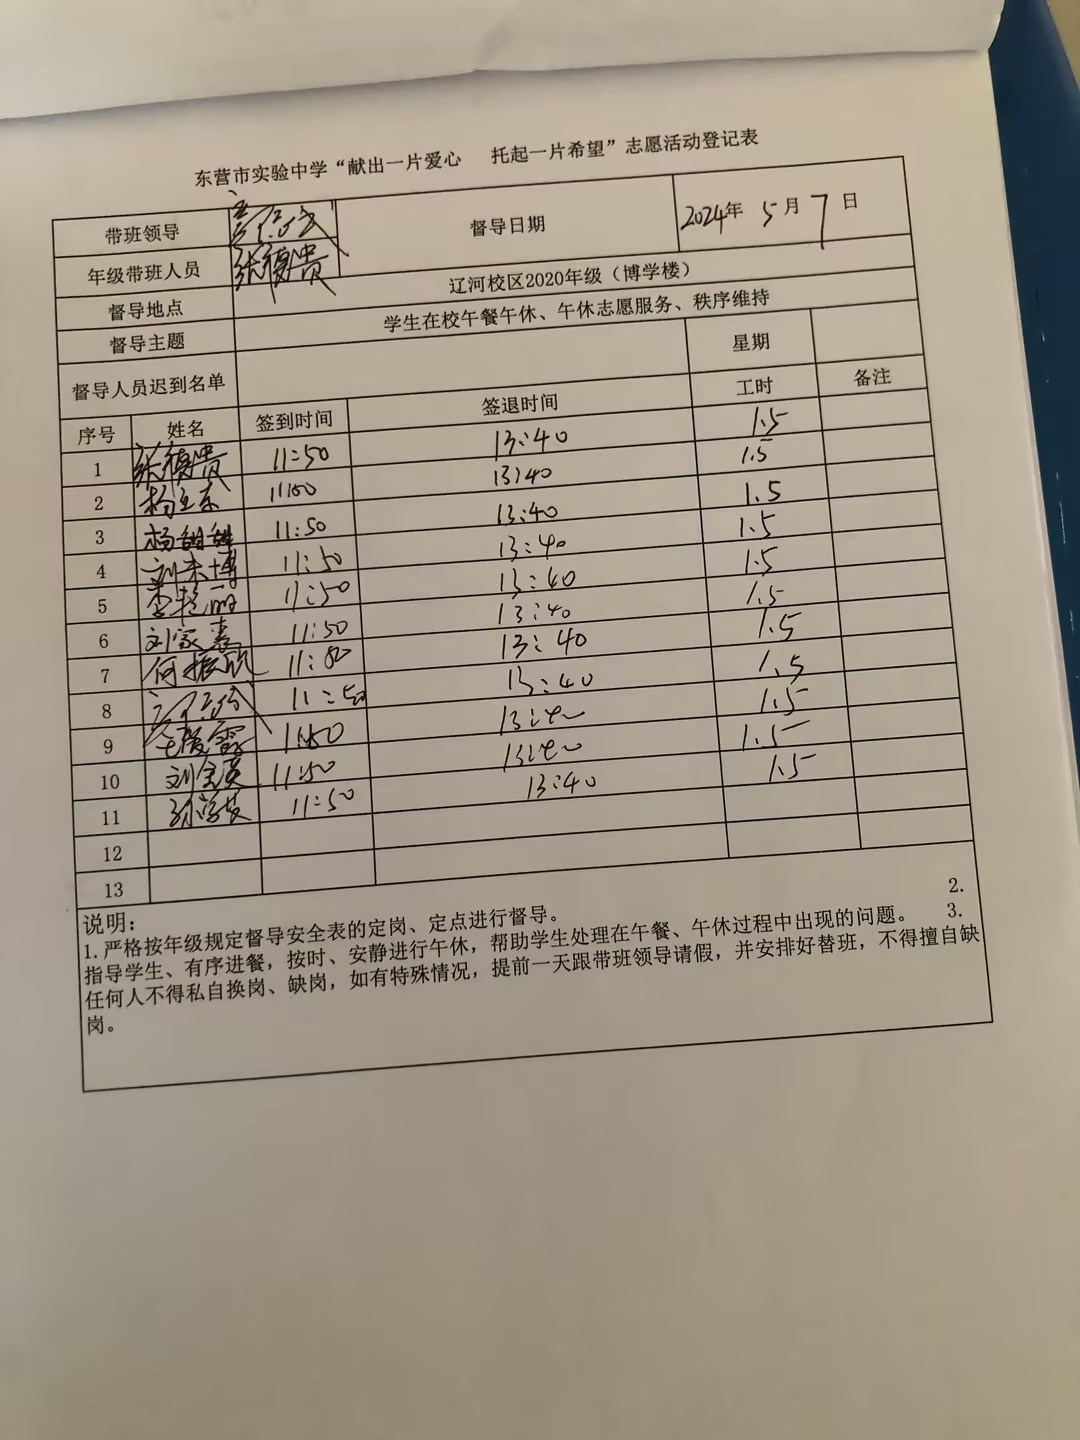 东营市实验中学“献出一片爱心 托起一片希望”志愿活动登记表
带班领导 督导日期 2024年 5月 7日
年级带班人员 张俊贵
督导地点 辽河校区2020年级（博学楼）
督导主题 学生在校午餐午休、午休志愿服务、秩序维持
督导人员迟到名单 星期
序号 姓名 签到时间 签退时间 工时 备注
1 张俊贵 11:50 13:40 1.5
2 13:40 1.5
3 杨甜甜 11:50 13:40 1.5
4 11:50 13:40 1.5
5 李艳丽 11:50 13:40 1.5
6 刘家嘉 11:50 13:40 1.5
7 何振欣 11:50 13:40 1.5
8 11:50 13:40 1.5
9 11:50 13:40 1.5
10 11:50 13:40 1.5
11 11:50 13:40 1.5
12
13
说明：
1.严格按年级规定督导安全表的定岗、定点进行督导。 2.
指导学生、有序进餐，按时、安静进行午休，帮助学生处理在午餐、午休过程中出现的问题。 3.
任何人不得私自换岗、缺岗，如有特殊情况，提前一天跟带班领导请假，并安排好替班，不得擅自缺
岗。